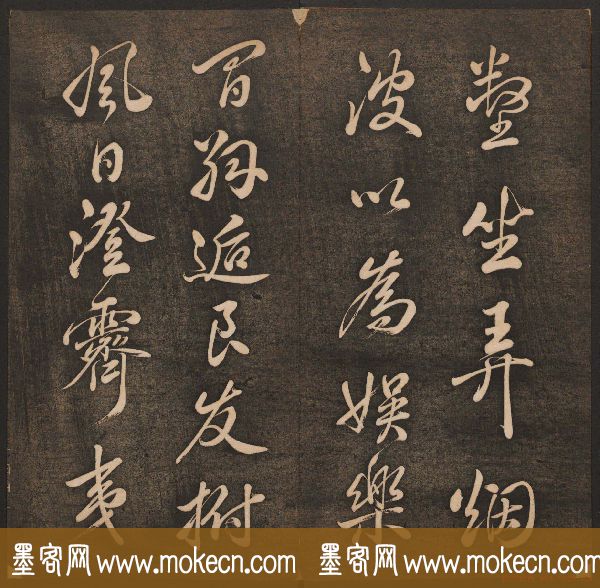 坐弄烟
波以為娱樂
間邂逅良友
風日澄霽夷
墨客网 www.mokecn.com 墨客网 www.mokecn.com